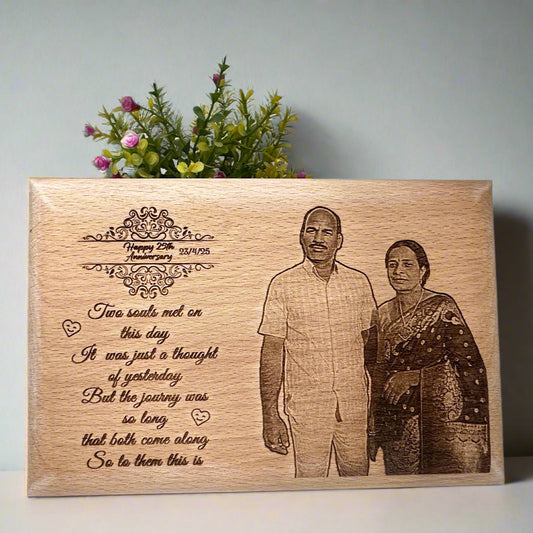 Happy 25th
Anniversary 23/4/25
Two souls met on
this day
It was just a thought
of yesterday
But the journy was
so long
that both come along
So to them this is